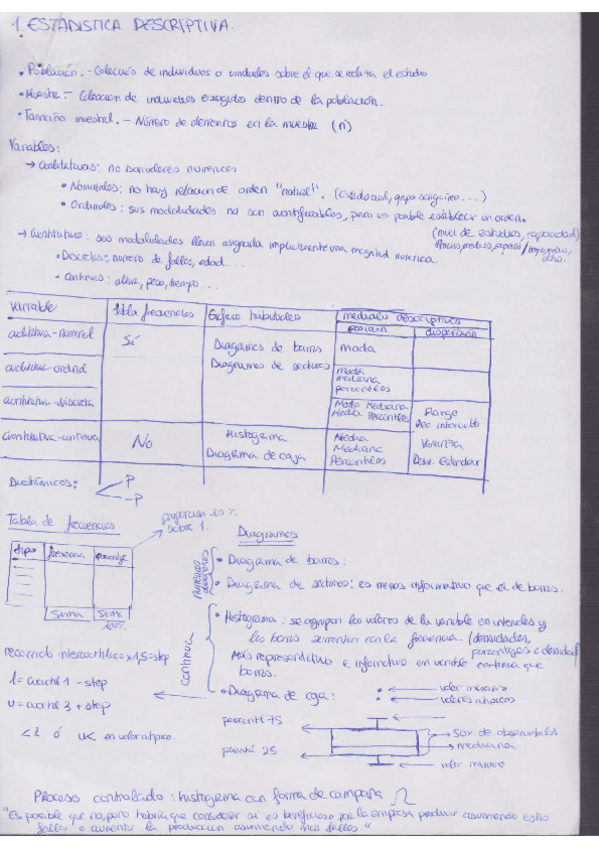 1. ESTADISTICA DESCRIPTIVA.
• Población. - Colección de individuos o unidades sobre el que se realiza el estudio
• Muestra. - Colección de individuos escogidos dentro de la población.
• Tamaño muestral. - Número de elementos en la muestra (n)
Variables:
→ Cualitativas: no son valores numericos
• Nominales: no hay relacion de orden "natural". (Código azul, grupo sanguíneo ...)
• Ordinales: sus modalidades no son cuantificables, pero es posible establecer un orden.
(nivel de estudios, capacidad)
→ Cuantitativas: sus modalidades llevan asignada implicitamente una magnitud numerica.
• Discretas: numero de fallos, edad ...
• Continuas: altura, peso, tiempo ...
Variable Tabla frecuencias Gráfico habituales medidas descriptivas
posición dispersión
cualitativa-nominal Sí Diagramas de barras moda
cualitativa-ordinal Diagramas de sectores moda
mediana
percentiles
cuantitativa-discreta Moda Mediana
Media Percentiles
Rango
Rec. intercuart
Cuantitativa-continua No Histograma Media Varianza
Diagrama de caja Mediana Desv. Estandar
Percentiles
Dicotómicas: P
-P
Tabla de frecuencias
proporcion es %
sobre 1.
tipo frecuencia porcentaje
suma suma
100%.
Diagramas
• Diagrama de barras:
• Diagrama de sectores: es menos informativo que el de barras.
continua
• Histograma: se agrupan los valores de la variable en intervalos y
las barras aumentan con la frecuencia. (densidades,
porcentajes o densidad)
Más representativo e informativo en variable continua que
barras.
recorrido intercuartilico x 1,5 = step
l = cuartil 1 - step
u = cuartil 3 + step
< l ó u < es valor atipico.
• Diagrama de caja:
valor maximo
valores atipicos
percentil 75
50% de observaciones
mediana
percentil 25
valor minimo
Proceso controlado: histograma con forma de campana
"Es posible que no, pero habría que considerar si es beneficioso para la empresa producir asumiendo estos
fallos o aumentar la produccion asumiendo más fallos."